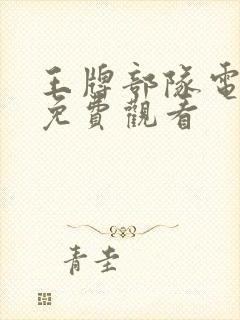 王牌部隊電
免費觀看
青圭